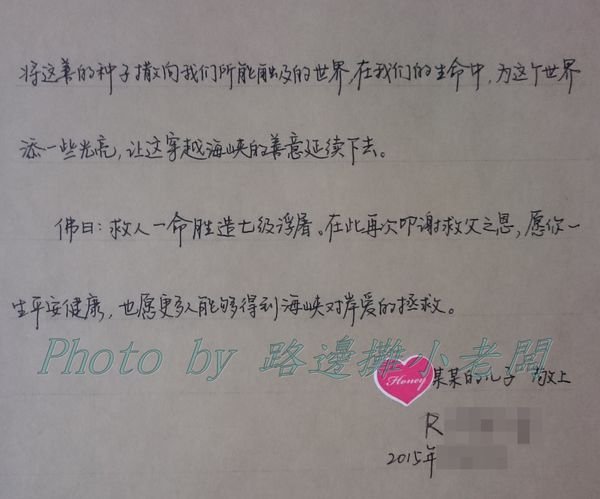 将这善的种子撒向我们所能触及的世界,在我们的生命中,为这个世界
添一些光亮,让这穿越海峡的善意延续下去。
佛曰:救人一命胜造七级浮屠。在此再次叩谢救父之恩,愿你一
生平安健康,也愿更多人能够得到海峡对岸爱的拯救。
Photo by 路邊攤小老闆
Honey
某某的儿子 敬上
R
2015年